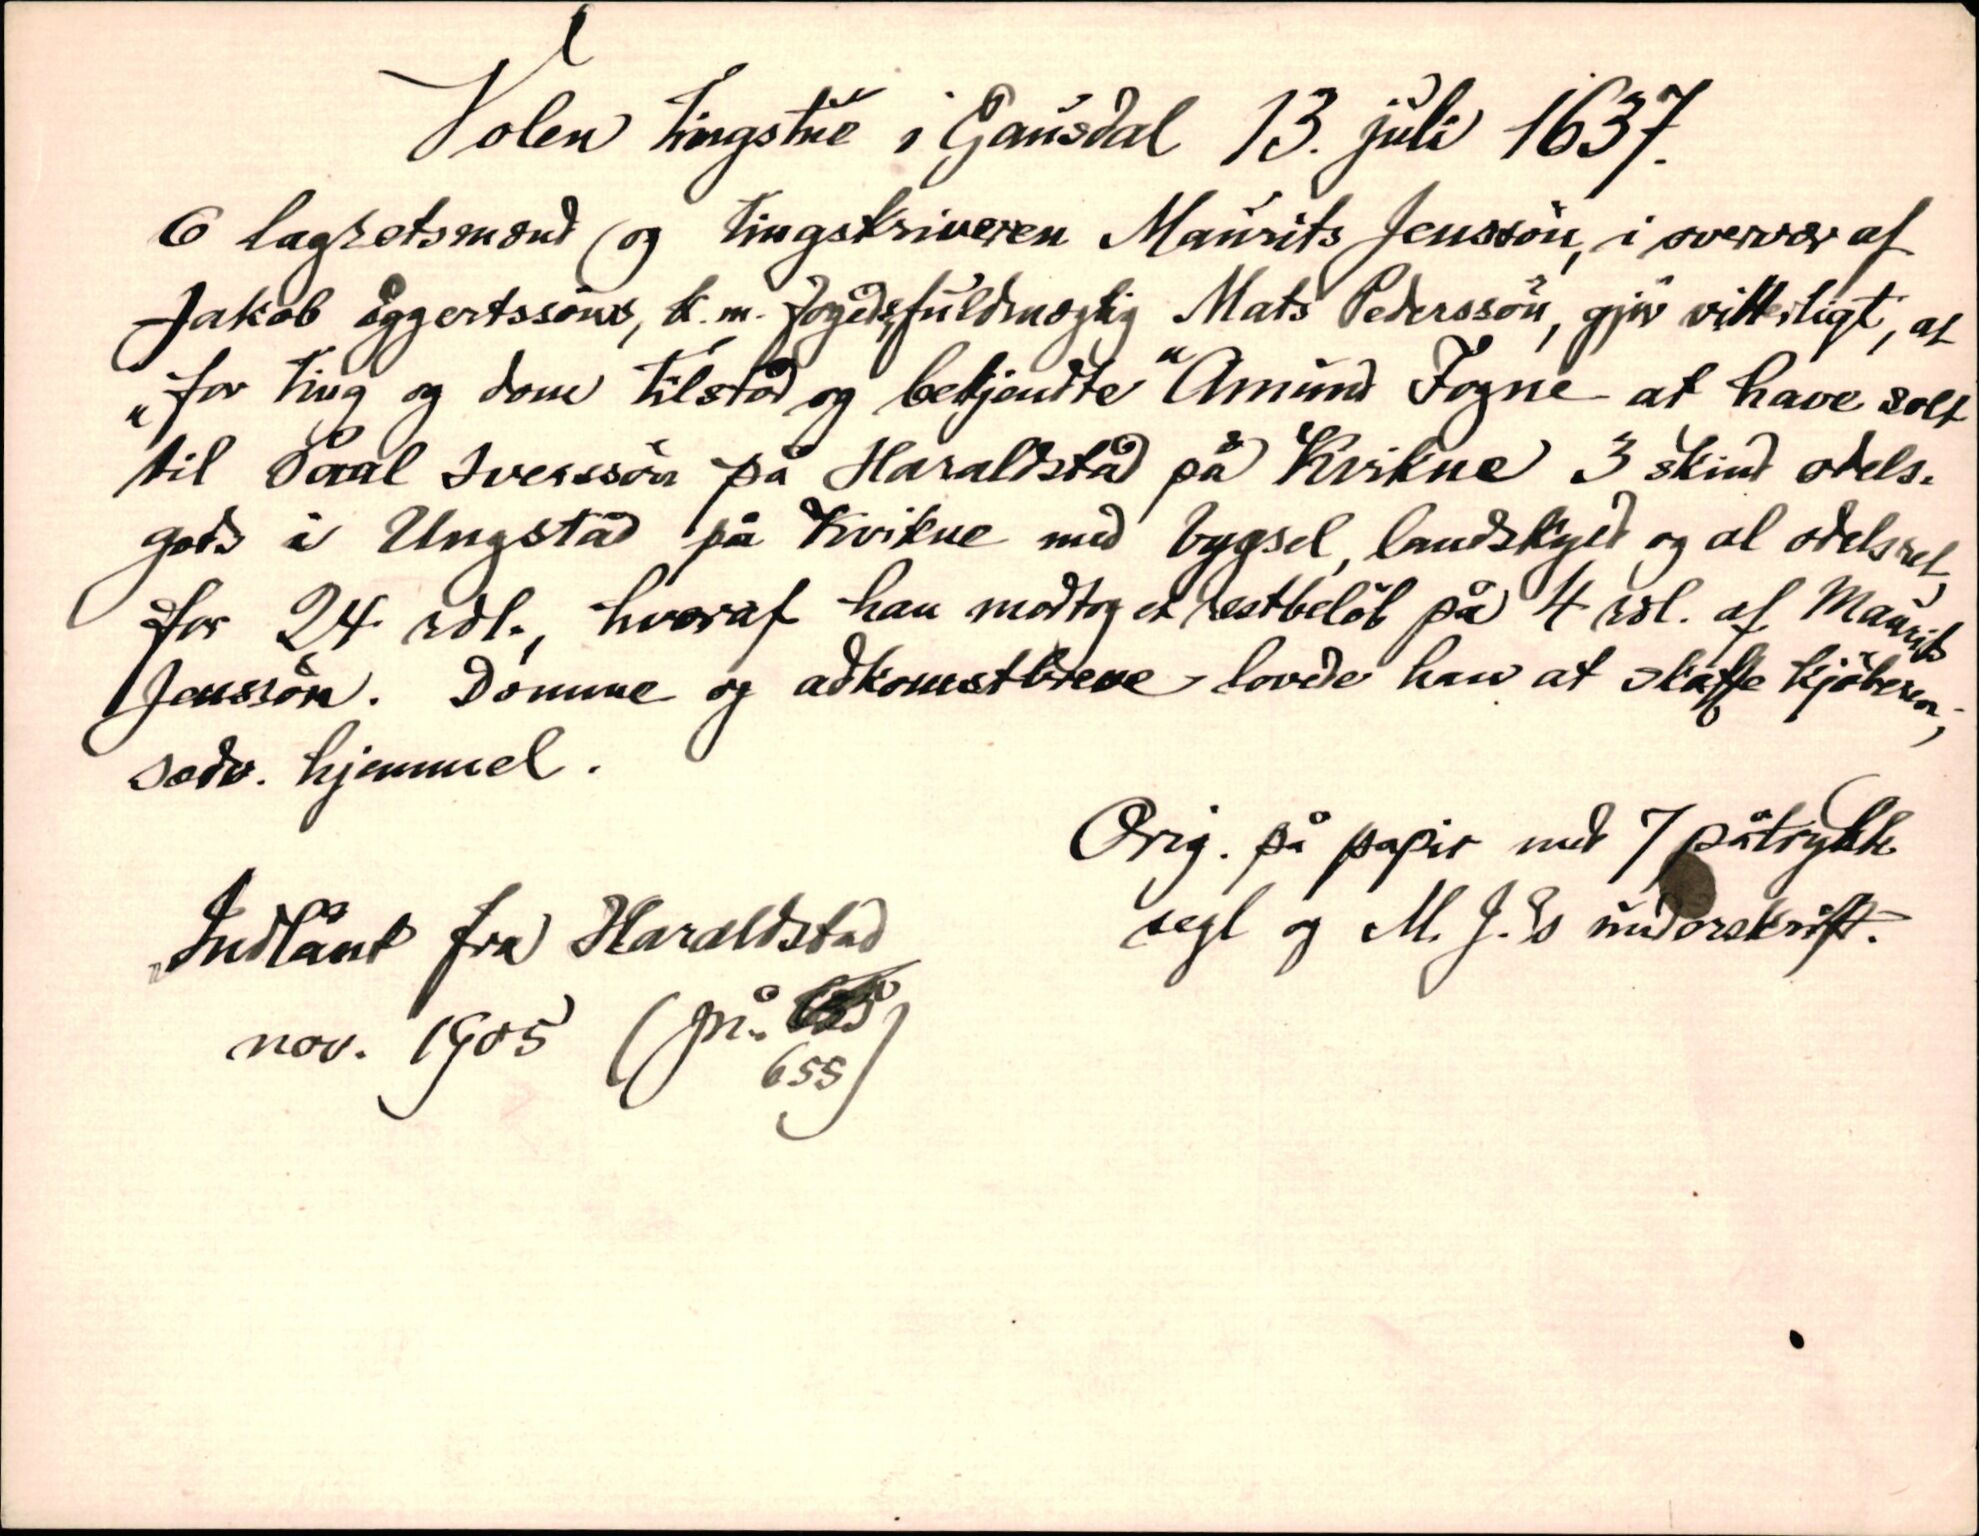 Volen tingstue i Gausdal 13. juli 1637.
6 lagretsmænd og tingskriveren Maurits Jenssön, i overvær af
Jakob Eggertssöns, k. m. fogeds, fuldmægtig Mats Pederssön, gjör vitterligt, at
„for ting og dom tilstod og bekjendte“ Amund Fogne at have solt
til Paal Iverssön på Haraldstad på Kvikne 3 skind odels-
gods i Ungstad på Kvikne med bygsel, landskyld og al odelsret
for 24 rdl., hvoraf han modtog et restbelöb på 4 rdl. af Maurits
Jenssön. Domme og adkomstbreve lovede han at skaffe kjöberen;
sedv. hjemmel.
Orig. på papir med 7 påtrykk
segl og M. J.s underskrift.
Indlånt fra Haraldstad
nov. 1905 (jrn.
655)